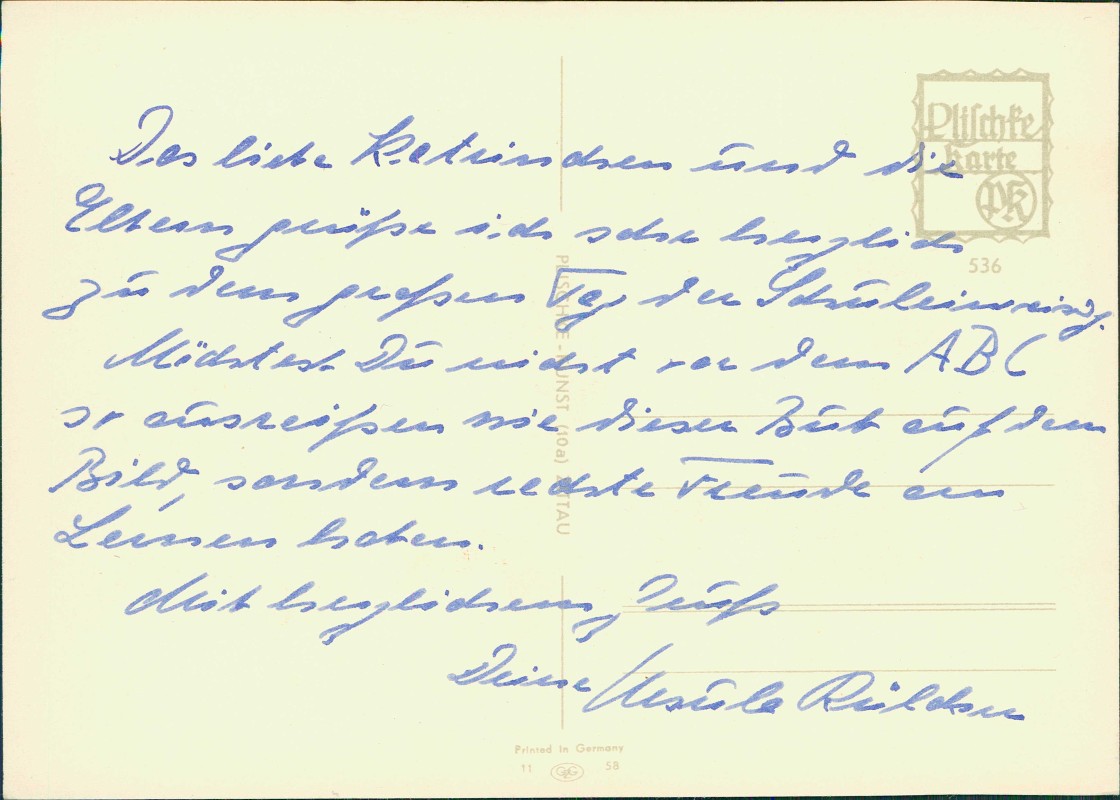 Plischke
Karte
PK
536
Das liebe Katrinchen und die
Eltern grüße ich sehr herzlich
zu dem großen Tag der
Möchtest Du nicht vor dem ABC
so ausreißen wie dieser Bub auf dem
Bild, sondern rechte Freude am
Lernen haben.
Mit herzlichem Gruß
Deine Ursula
PLISCHKE-KUNST (10a) ZITTAU
Printed in Germany
11 GG 58